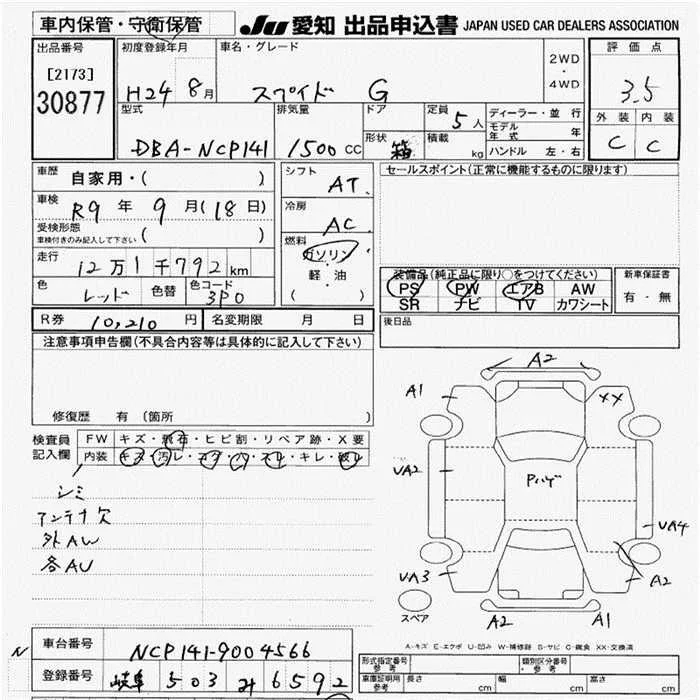 車内保管・守衛保管 JU 愛知 出品申込書 JAPAN USED CAR DEALERS ASSOCIATION
出品番号 初度登録年月 車名・グレード 2WD・4WD 評価点
[2173] 30877 H24 8月 スペイド G 3.5
型式 排気量 ドア 定員 5人 ディーラー・並行 外装 内装
モデル年式 年
DBA-NCP141 1500 CC 形状 箱 積載 kg ハンドル 左・右 C C
車歴 自家用・( ) シフト AT セールスポイント(正常に機能するものに限ります)
車検 R9年 9月(18日) 冷房 AC
受検形態 ( )
車検付きのみ記入して下さい
燃料 ガソリン・軽油 ( )
走行 12万1千792km 装備品(純正品に限り○をつけてください) 新車保証書
色 レッド 色替 色コード 3P0 PS PW エアB AW 有・無
SR ナビ TV カワシート
R券 10,210円 名変期限 月 日 後日品
注意事項申告欄(不具合内容等は具体的に記入して下さい)
修復歴 有 (箇所 )
検査員記入欄 FW キズ・飛石・ヒビ割・リペア跡・X要
内装 キズ・汚レ・コゲ・穴・スレ・キレ・破レ
シミ
アンテナ欠
外AW
各AU
A2
A1 XX
UA2 Pハゲ
UA4
UA3 A2
スペア A2 A1
A-キズ E-エクボ U-凹み W-補修跡 S-サビ C-腐食 XX-交換済
車台番号 NCP141-9004566
登録番号 岐阜 503 6592
形式指定番号 参考 類別区分番号 参考
車庫証明用 参考 長さ cm 幅 cm 高さ cm